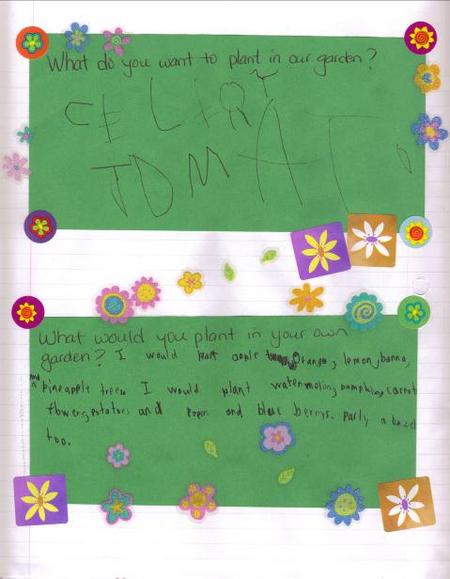 What do you want to plant in our garden?
CELIRY
TOMATO
What would you plant in your own
garden? I would apple orange, lemon, banna,
pineapple trees I would plant watermoling pumpking carrot
flowers, potatoes and and blue berrys. Parly n bazel
too.